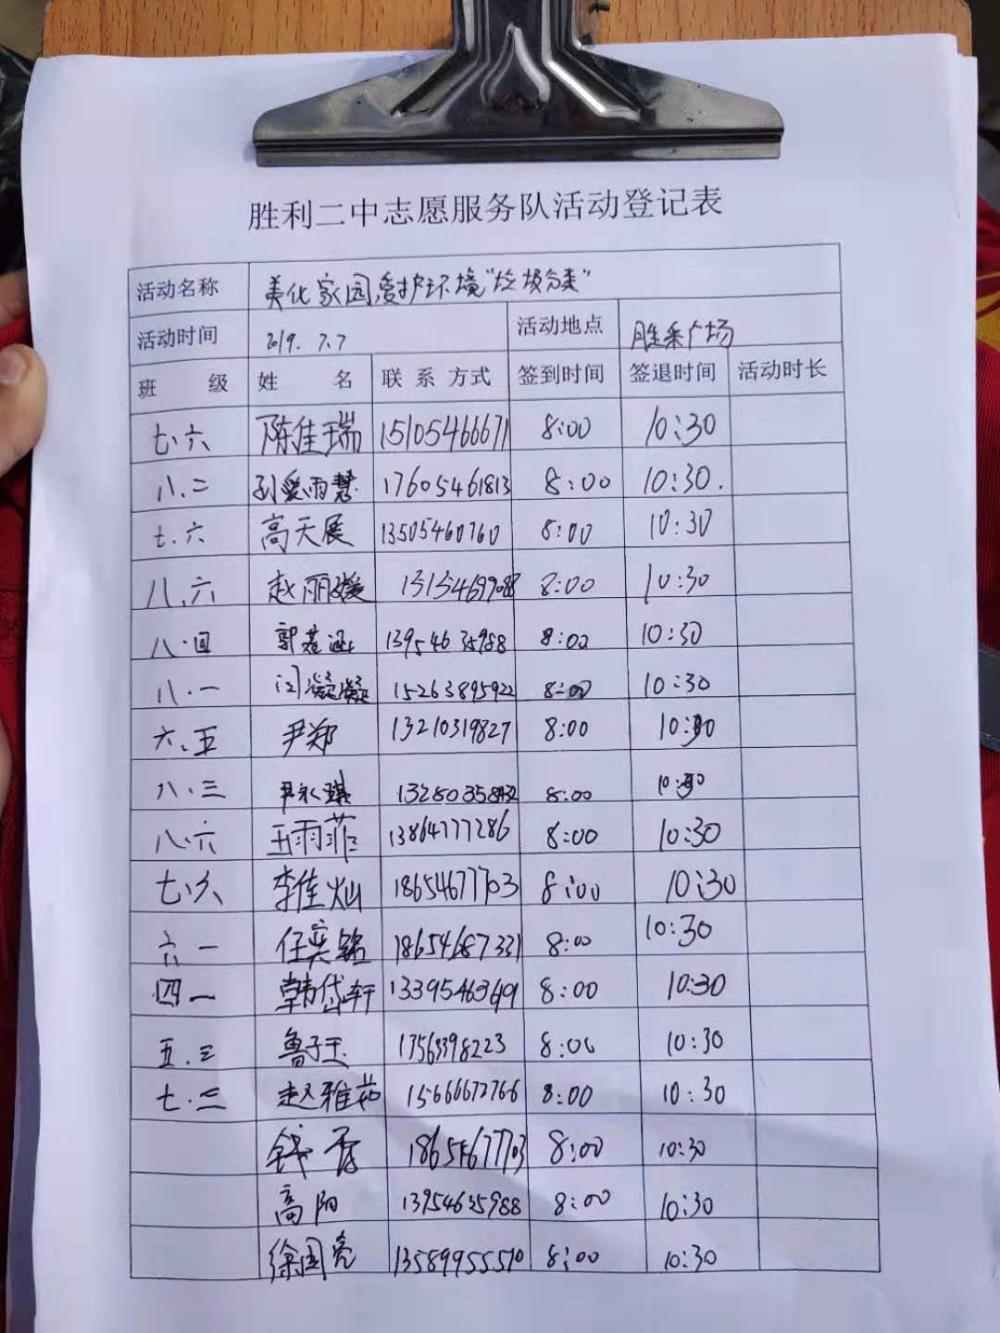 胜利二中志愿服务队活动登记表
活动名称 美化家园爱护环境"垃圾分类"
活动时间 2019.7.7 活动地点 胜采广场
班 级 姓 名 联系方式 签到时间 签退时间 活动时长
七.六 陈佳瑞 15105466671 8:00 10:30
八.二 孙爱雨慧 17605461813 8:00 10:30.
七.六 高天展 13505460760 8:00 10:30
八.六 赵丽媛 8:00 10:30
八.四 郭若涵 13954635988 8:00 10:30
八.一 闫凝凝 15263895922 8:00 10:30
六.五 尹郑 13210319827 8:00 10:30
八.三 8:00 10:30
八.六 王雨菲 13864777286 8:00 10:30
七.六 李佳灿 18654677703 8:00 10:30
六一 任奕铭 18654687331 8:00 10:30
四一 韩岱轩 8:00 10:30
五.三 鲁子玉 13563398223 8:00 10:30
七.三 赵雅茹 15666672766 8:00 10:30
钱香 18654677703 8:00 10:30
高阳 13954635988 8:00 10:30
徐国亮 13589955510 8:00 10:30